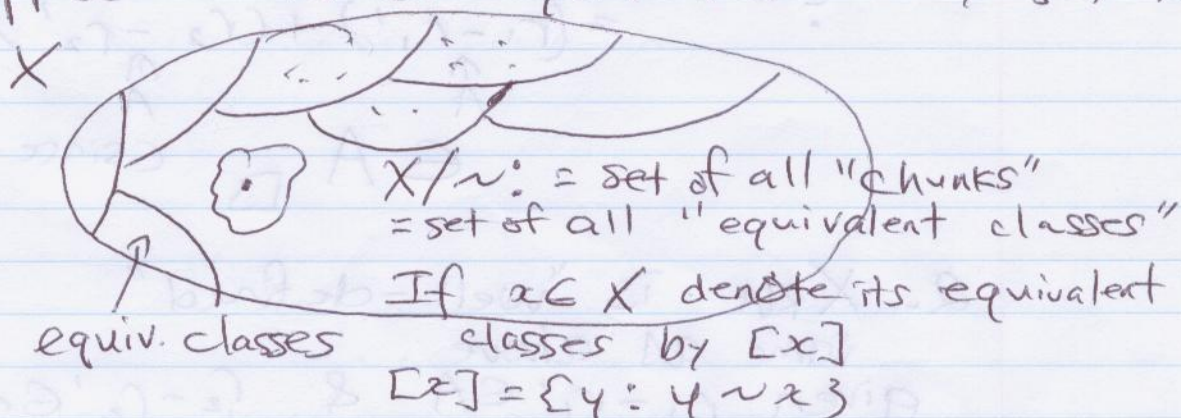 X
X/~ := set of all "chunks"
= set of all "equivalent classes"
If x ∈ X denote its equivalent
equiv. classes
classes by [x]
[x] = {y : y ~ x}